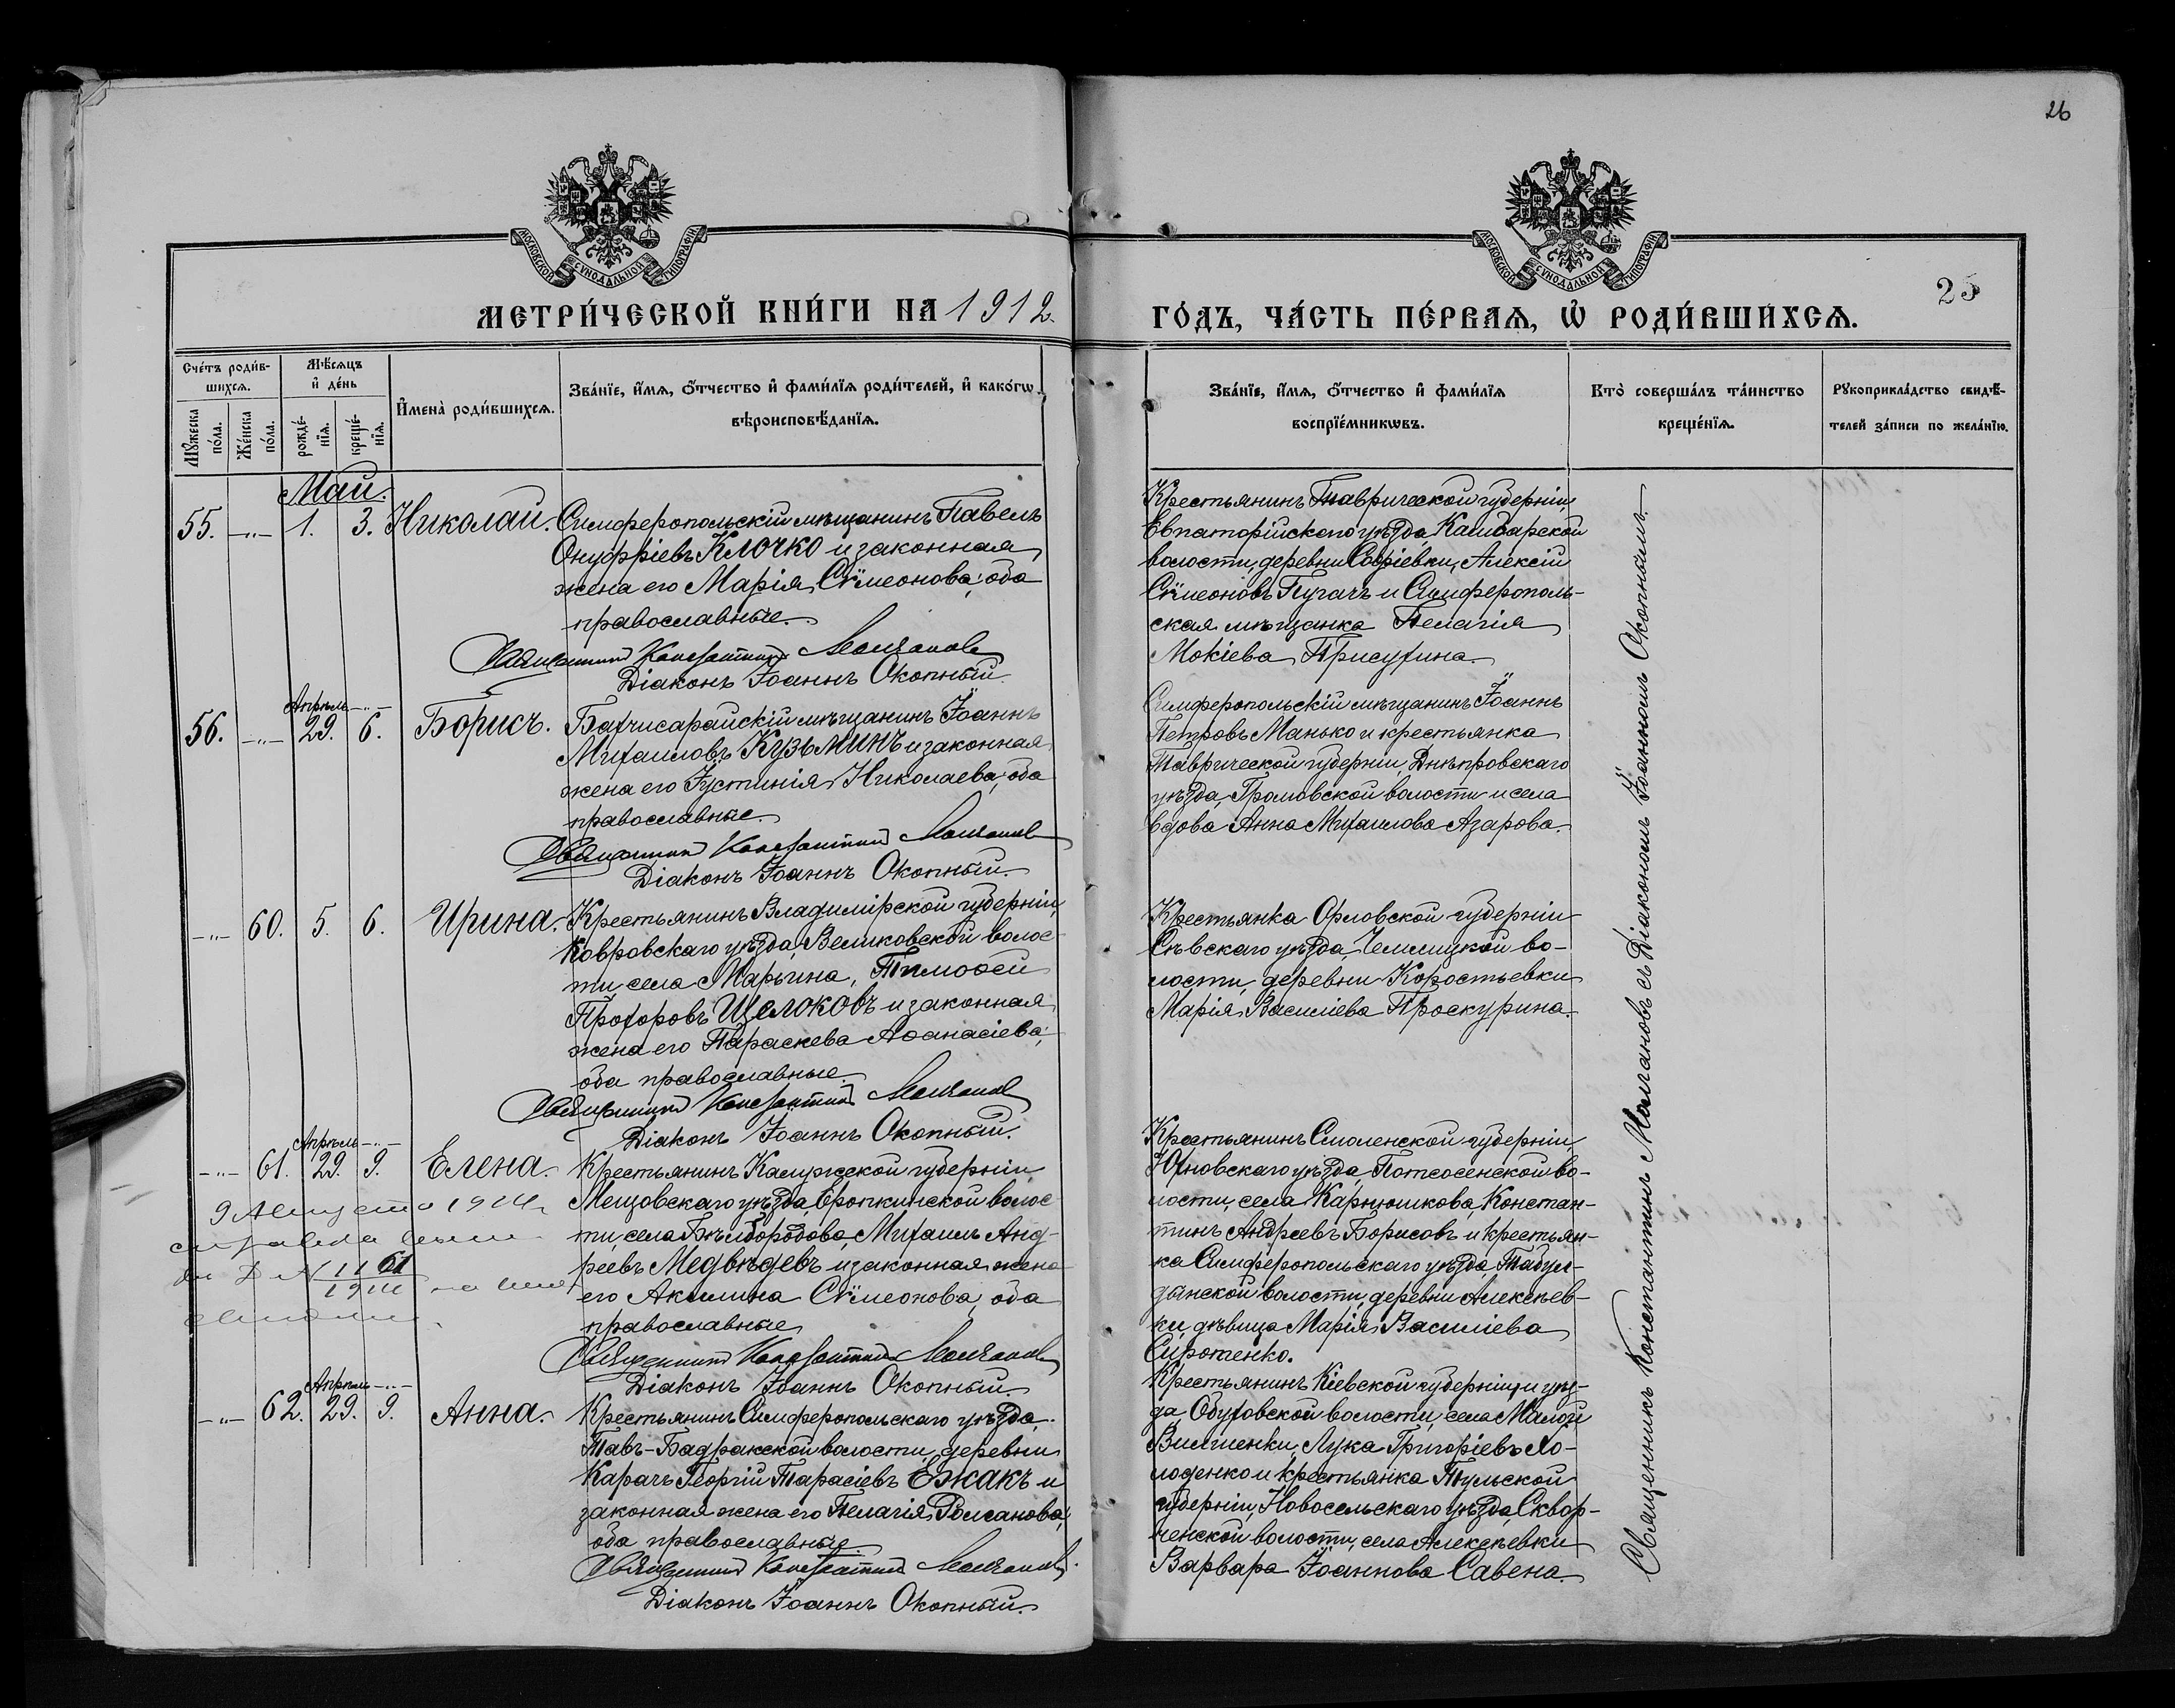 26
МОСКОВСКОЙ СѴНОДАЛЬНОЙ ТИПОГРАФІИ
МОСКОВСКОЙ СѴНОДАЛЬНОЙ ТИПОГРАФІИ
25
МЕТРИ́ЧЕСКОЙ КНИ́ГИ НА 1912.
ГО́ДЪ, ЧА́СТЬ ПЕ́РВАѦ, Ѡ РОДИ́ВШИХСѦ.
Сче́тъ роди́в-
шихсѧ.
Мꙋжеска по́ла.
Же́нска по́ла.
Мѣ́сѧцъ
и де́нь
рожде́-
нїѧ.
креще́-
нїѧ.
Имена̀ роди́вшихсѧ.
Зва́нїе, и́мѧ, о́тчество и фами́лїѧ роди́телей, и како́гѡ
вѣроисповѣ́данїѧ.
Зва́нїе, и́мѧ, о́тчество и фами́лїѧ
воспрїе́мникѡвъ.
Кто̀ соверша́лъ та́инство
креще́нїѧ.
Рꙋкоприкла́дство свидѣ́-
телей за́писи по жела́нїю.
Май.
55. —"— 1. 3. Николай.
Симферопольскій мѣщанинъ Павелъ
Онуфріевъ Клочко и законная
жена его Марія Сѵмеонова; оба
православные.
Священникъ Константинъ Молчановъ
Діаконъ Іоаннъ Окопный.
Крестьянинъ Таврической губерніи,
Евпаторійскаго уѣзда,
волости, деревни Софіевки, Алексій
Сѵмеоновъ Пугачъ и Симферополь-
ская мѣщанка Пелагія
Мокіева Присухина.
Апрѣль —"—
56. —"— 29. 6. Борисъ.
Бахчисарайскій мѣщанинъ Іоаннъ
Михаиловъ Кузьминъ и законная
жена его Іустинія Николаева; оба
православные.
Священникъ Константинъ Молчановъ
Діаконъ Іоаннъ Окопный.
Симферопольскій мѣщанинъ Іоаннъ
Петровъ Манько и крестьянка
Таврической губерніи, Днѣпровскаго
уѣзда, Громовской волости и села
вдова Анна Михаилова Азарова.
—"— 60. 5. 6. Ирина.
Крестьянинъ Владимірской губерніи,
Ковровскаго уѣзда, Великовской волос-
ти, села Марьина, Тимоѳей
Прохоровъ Щелоковъ и законная
жена его Параскева Аѳанасіева;
оба православные.
Священникъ Константинъ Молчановъ
Діаконъ Іоаннъ Окопный.
Крестьянка Орловской губерніи
Сѣвскаго уѣзда, Чемлицкой во-
лости, деревни Коростьевки
Марія Василіева Проскурина.
Апрѣль —"—
—"— 61. 29. 9. Елена.
Крестьянинъ Калужской губерніи
Мещовскаго уѣзда, волос-
ти, села Михаилъ Анд-
реевъ Медвѣдевъ и законная жена
его Акилина Сѵмеонова, оба
православные
Священникъ Константинъ Молчановъ
Діаконъ Іоаннъ Окопный.
9 Августа
Крестьянинъ Смоленской губерніи,
Юхновскаго уѣзда, во-
лости, села Карнюшкова, Констан-
тинъ Андреевъ Борисовъ и крестьян-
ка Симферопольскаго уѣзда, Табул-
данской волости, деревни Алексѣев-
ки, дѣвица Марія Василіева
Сиротенко.
Апрѣль —"—
—"— 62. 29. 9. Анна.
Крестьянинъ Симферопольскаго уѣзда
Тавъ-Бадракской волости, деревни
Карачъ Георгій Тарасіевъ Ежакъ и
законная жена его Пелагія Романова,
оба православные.
Священникъ Константинъ Молчановъ
Діаконъ Іоаннъ Окопный.
Крестьянинъ Кіевской губерніи и уѣз-
да, Обуховской волости, села Малой
Вильшенки, Лука Григоріевъ Хо-
лоденко и крестьянка Тульской
губерніи, Новосельскаго уѣзда, Сквор-
ченской волости, села Алексѣевки
Варвара Іоаннова Савена.
Священникъ Константинъ Молчановъ съ Діакономъ Іоанномъ Окопнымъ.